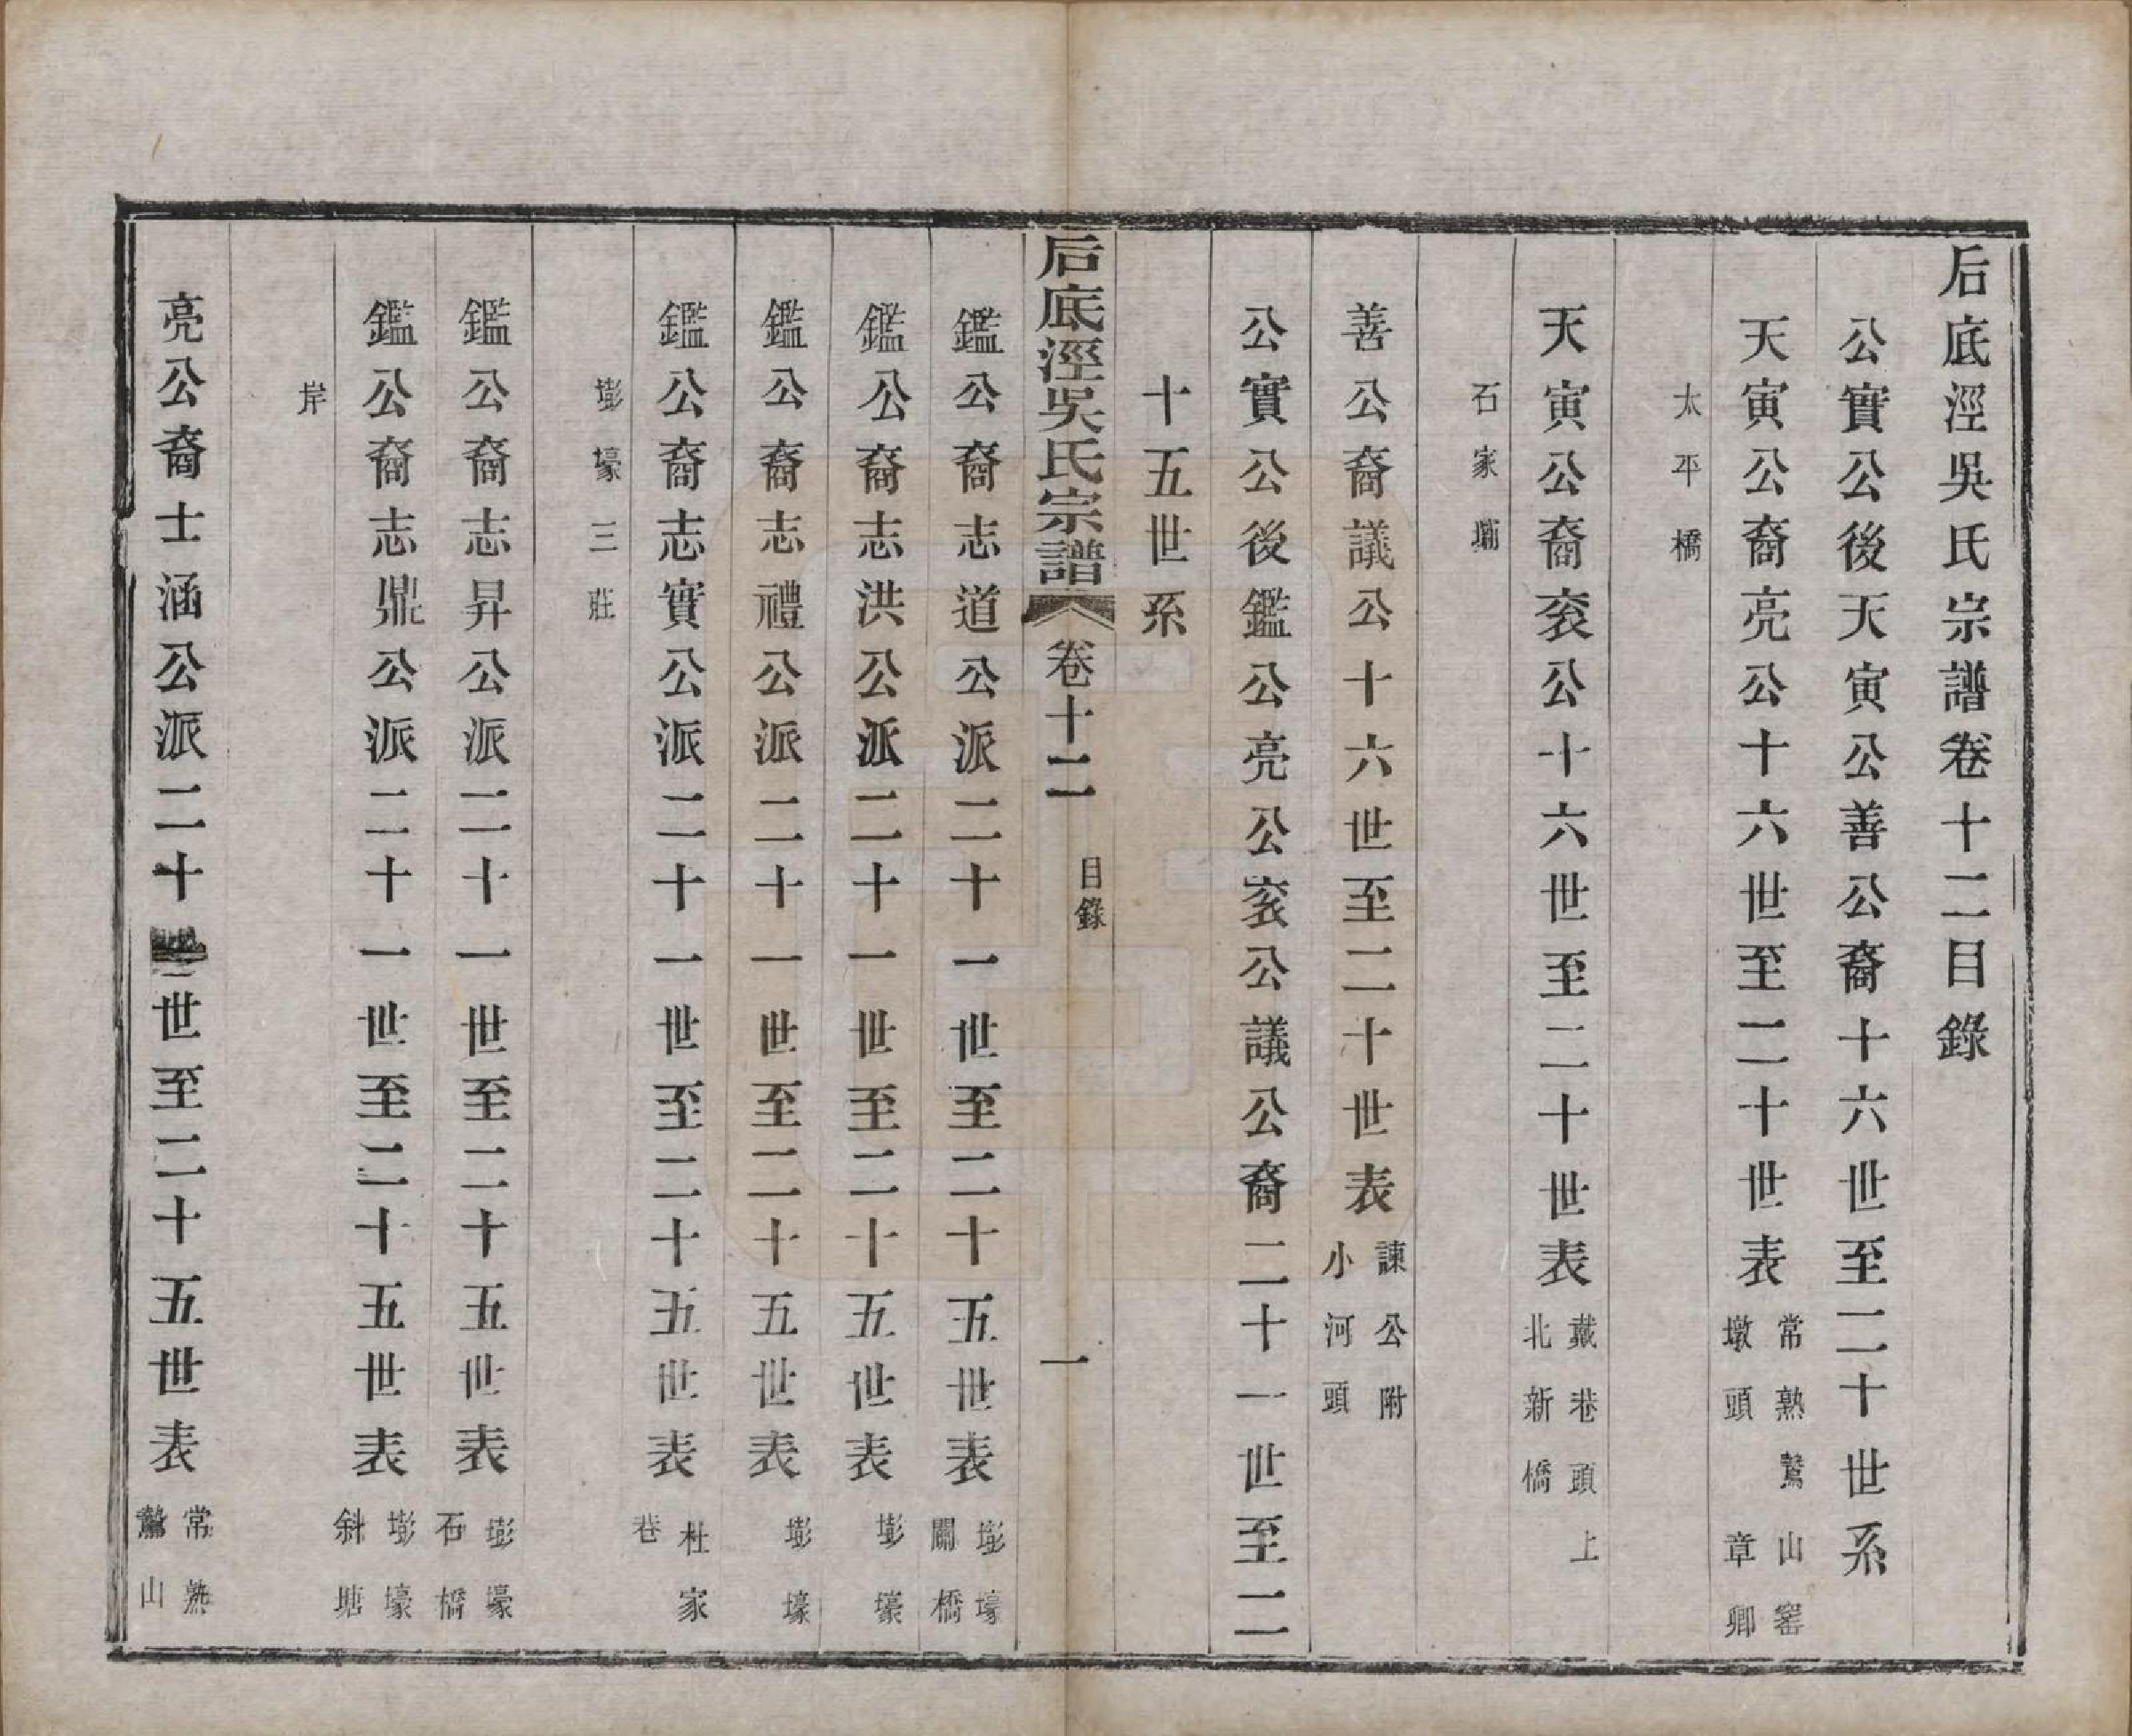 后底涇吳氏宗譜卷十二目錄
公實公後天寅公善公裔十六世至二十世系
天寅公裔亮公十六世至二十世表 常熟鶖山窰墩頭 章卿
太平橋
天寅公裔衮公十六世至二十世表 戴巷頭上北新橋
石家
善公裔議公十六世至二十世表 諫公附小河頭
公實公後鑑公亮公衮公議公裔二十一世至二
十五世系
后底涇吳氏宗譜 卷十二 目錄 一
鑑公裔志道公派二十一世至二十五世表 塳壕關橋
鑑公裔志洪公派二十一世至二十五世表 塳壕
鑑公裔志禮公派二十一世至二十五世表 塳壕
鑑公裔志實公派二十一世至二十五世表 杜家巷
塳壕三莊
鑑公裔志昇公派二十一世至二十五世表 塳壕石橋
鑑公裔志鼎公派二十一世至二十五世表 塳壕斜塘
岸
亮公裔士涵公派二十一世至二十五世表 常熟鶖山